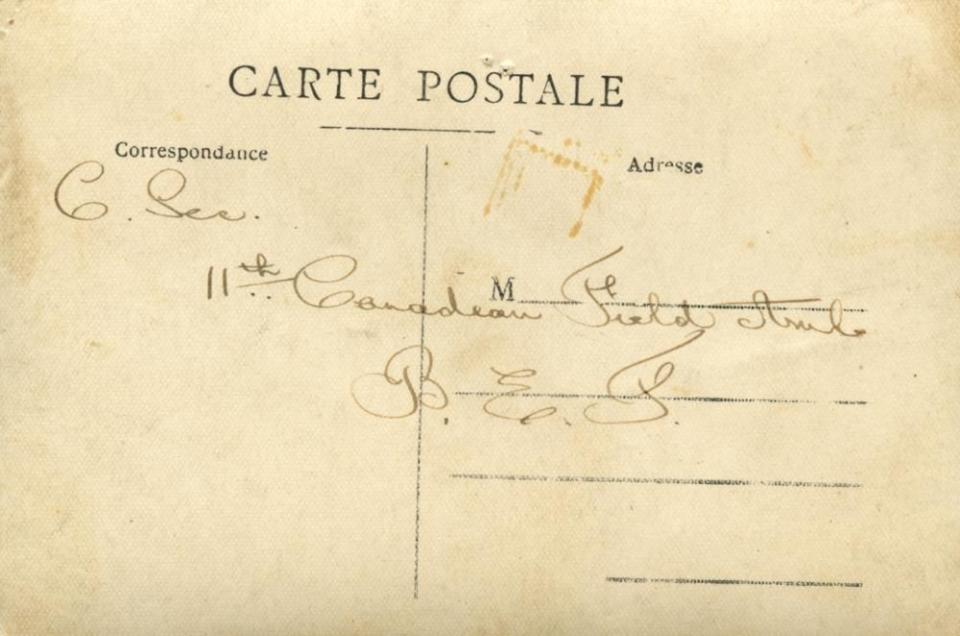 CARTE POSTALE
Correspondance
Adresse
C. Sec.
11th Canadian Field Amb
M
B. E. F.